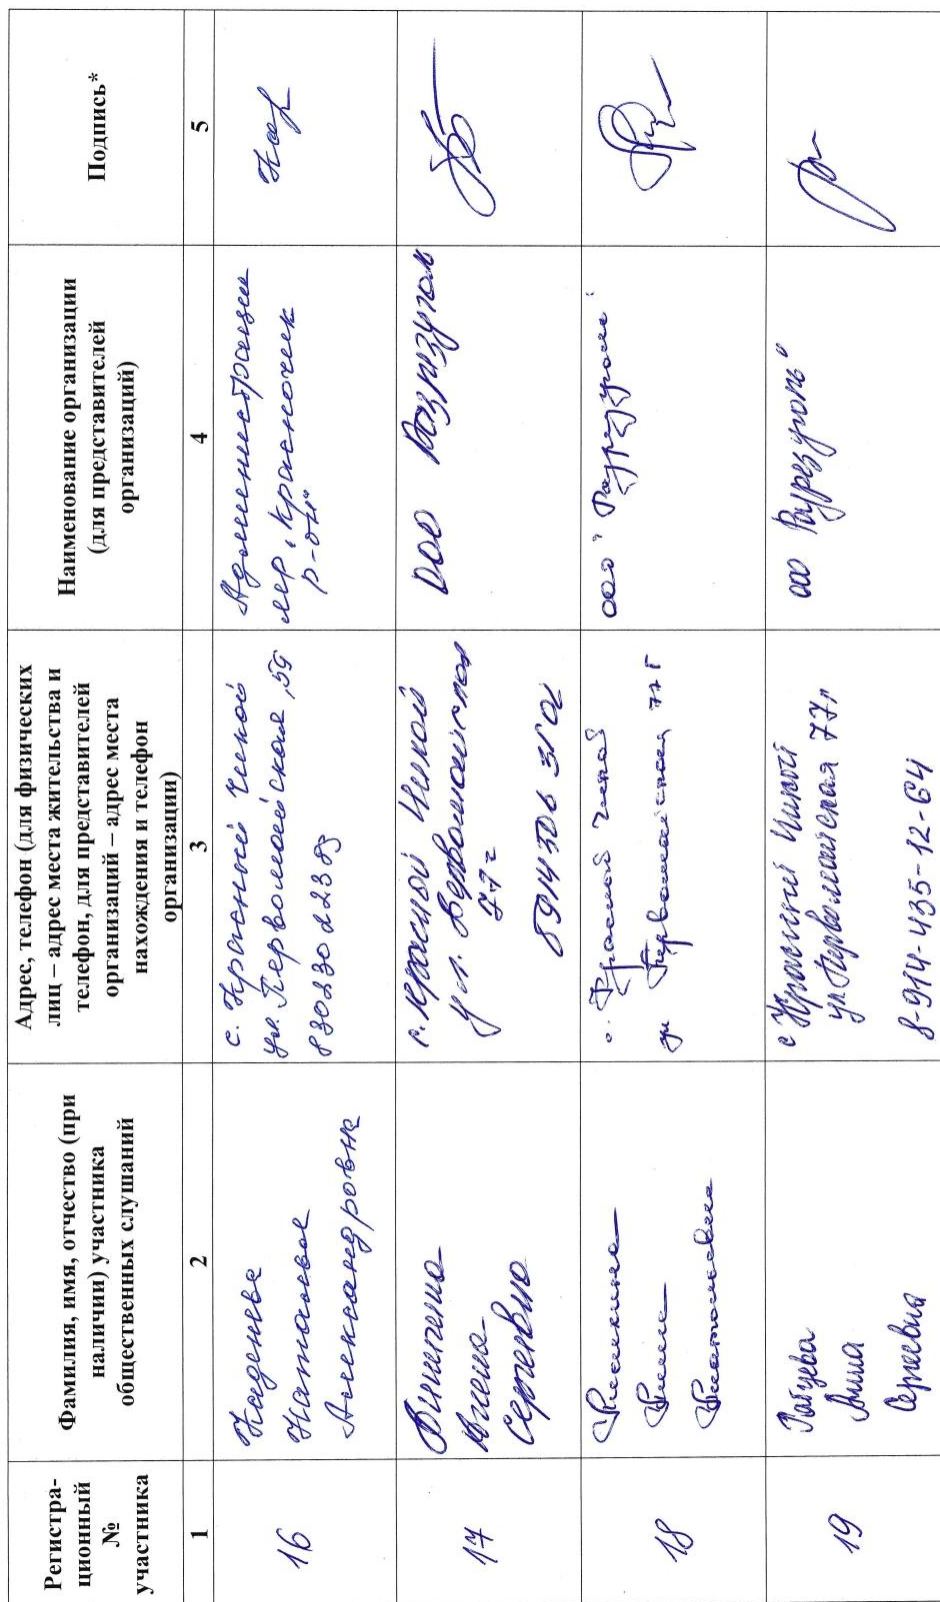 Регистра-
ционный
№
участника
Фамилия, имя, отчество (при
наличии) участника
общественных слушаний
Адрес, телефон (для физических
лиц – адрес места жительства и
телефон, для представителей
организаций – адрес места
нахождения и телефон
организации)
Наименование организации
(для представителей
организаций)
Подпись*
1
2
3
4
5
16
Каденева
Наталья
Александровна
с. Красный Чикой
ул. Первомайская, 59
83023022383
Администрация
мр. Красночик
р-он"
17
Сергеевна
с. Красный Чикой
ул. Первомайская
77 г
ООО Разрезуголь
18
Анна
Анатольевна
с. Красный Чикой
ул Первомайская 77 г
ООО "Разрезуголь"
19
Анна
Сергеевна
с Красный Чикой
ул Первомайская 77г
8-914-435-12-64
ООО Разрезуголь"